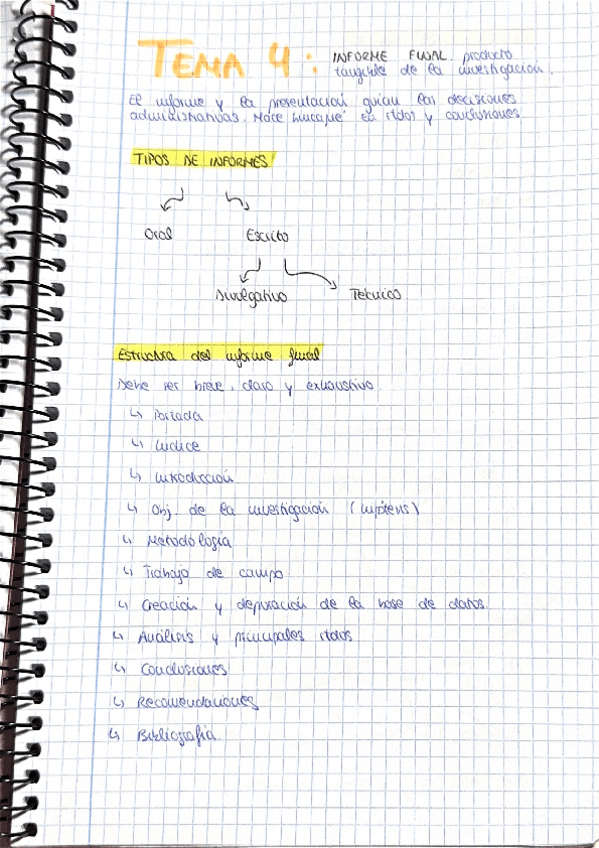 TEMA 4: INFORME FINAL. producto
tangible de la investigación.
El informe y la presentación guían las decisiones
administrativas. Hace hincapié en rtdos y conclusiones
TIPOS DE INFORMES
Oral Escrito
Divulgativo Técnico
Estructura del informe final
Debe ser breve, claro y exhaustivo
↳ Portada
↳ Indice
↳ Introducción
↳ Obj. de la investigación (hipótesis)
↳ Metodología
↳ Trabajo de campo
↳ Creación y depuración de la base de datos
↳ Análisis y principales rtdos
↳ Conclusiones
↳ Recomendaciones
↳ Bibliografía